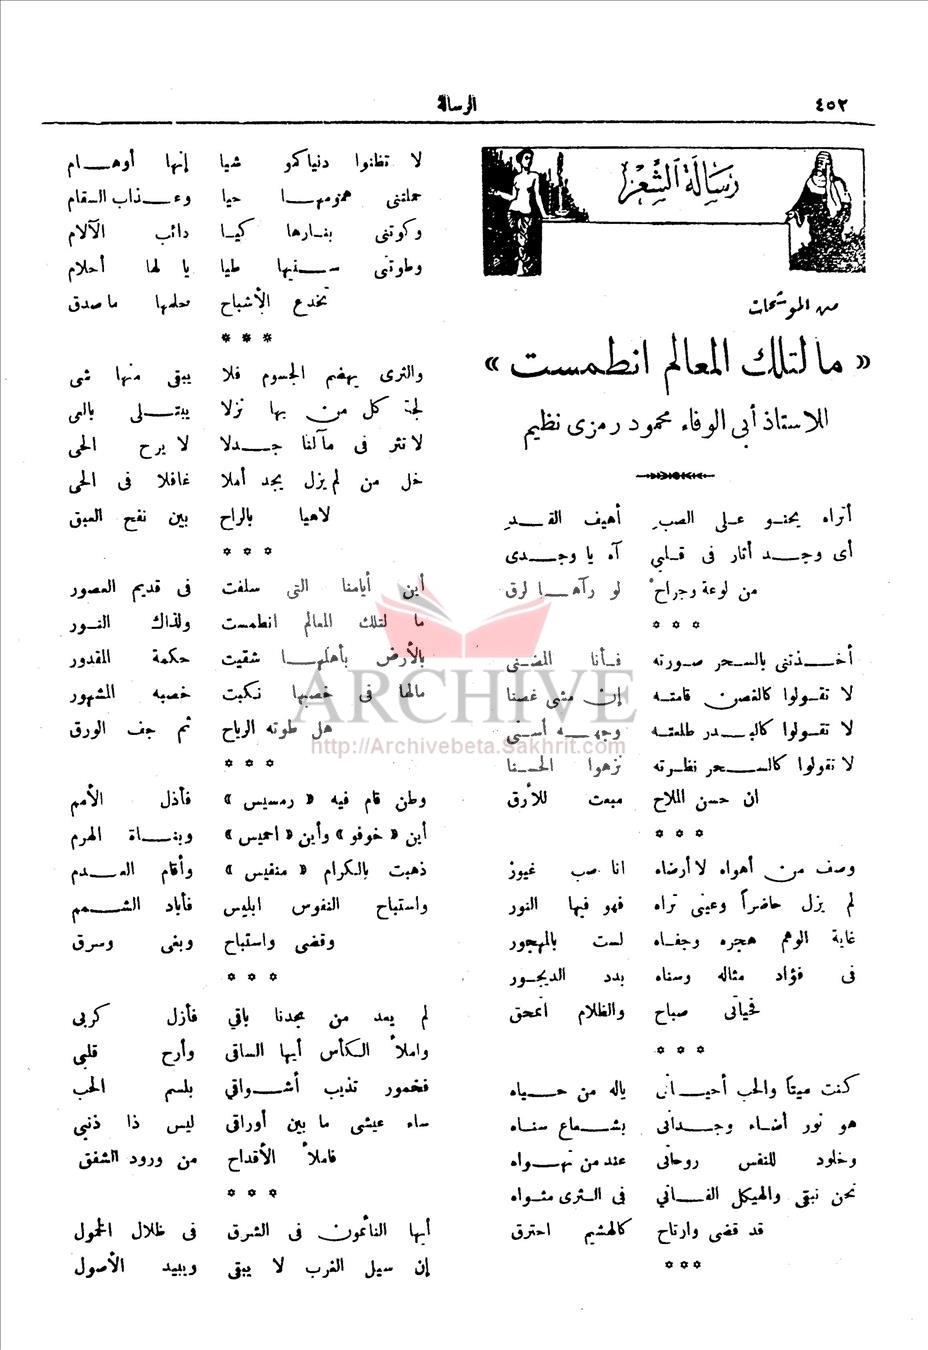 ٤٥٢
الرسالة
رسالة الشعر
من الموشحات
« ما لتلك المعالم انطمست »
للاستاذ أبى الوفاء محمود رمزى نظيم
أتراه يحنو على الصبِ أهيف القدِ
أى وجد أثار فى قلبي آه يا وجدى
من لوعة وجراح لو رآها لرق
* * *
أخذتنى بالسحر صورته فأنا المضنى
لا تقولوا كالغصن قامته إن مشى غصنا
لا تقولوا كالبدر طلعته وجهه أسنى
لا تقولوا كالسحر نظرته نزهوا الحسنا
ان حسن الملاح مبعث للأرق
* * *
وصف من أهواه لا أرضاه انا صب غيور
لم يزل حاضراً وعينى تراه فهو فيها النور
غاية الوهم هجره وجفاه لست بالمهجور
فى فؤاد مثاله وسناه بدد الديجور
فحياتى صباح والظلام انمحق
* * *
كنت ميتا والحب أحيانى ياله من حياه
هو نور أضاء وجدانى بشعاع سناه
وخلود للنفس روحانى عند من تهواه
نحن نبقى والهيكل الفانى فى الثرى مثواه
قد قضى وارتاح كالهشيم احترق
* * *
لا تظنوا دنياكمو شيا إنها أوهام
حملتنى همومها حيا وعذاب السقام
وكوتنى بنارها كيا دائب الآلام
وطوتنى سنيها طيا يا لها أحلام
تخدع الأشباح حلمها ما صدق
* * *
والثرى يهضم الجسوم فلا يبقى منها شى
لجة كل من بها نزلا يبتلى بالعى
لا نثر فى مآلنا جدلا لا يرح الحى
خل من لم يزل يجد أملا غافلا فى الحى
لاهيا بالراح بين نفح العبق
* * *
أين أيامنا التى سلفت فى قديم العصور
ما لتلك المعالم انطمست ولذاك النور
بالأرض بأهلها شقيت حكمة المقدور
مالها فى خصبها نكبت خصبه المشهور
هل طوته الرياح ثم جف الورق
* * *
وطن قام فيه « رمسيس » فأذل الأمم
أين « خوفو » وأين « احميس » وبناة الهرم
ذهبت بالكرام « منفيس » وأقام العدم
واستباح النفوس ابليس فأباد الشمم
وقضى واستباح وبغى وسرق
* * *
لم يعد من مجدنا باقي فأزل كربى
واملأ الكأس أيها الساقى وأرح قلبي
فخمور تذيب أشواقي بلسم الحب
ساء عيشى ما بين أوراقى ليس ذا ذنبي
فاملأ الأقداح من ورود الشفق
* * *
أيها النائمون فى الشرق فى ظلال الخمول
إن سيل الغرب لا يبقى ويبيد الأصول
ARCHIVE
http://Archivebeta.Sakhrit.com